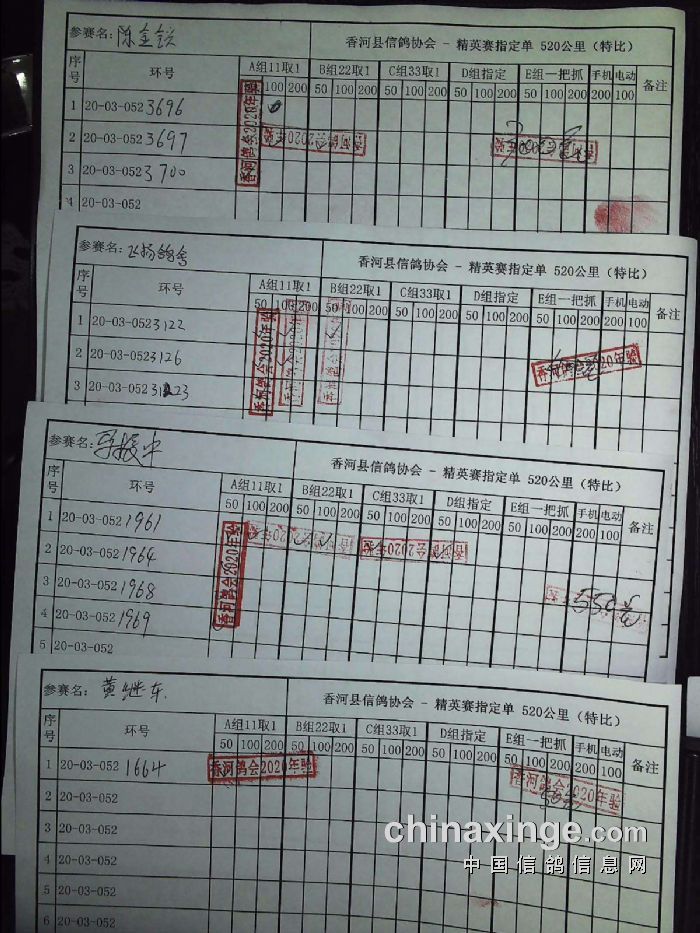 参赛名：陈金锐 香河县信鸽协会 - 精英赛指定单 520公里（特比）
序号 环号 A组11取1 B组22取1 C组33取1 D组指定 E组一把抓 手机 电动 备注
50 100 200 50 100 200 50 100 200 50 100 200 50 100 200 200 100
1 20-03-0523696
2 20-03-0523697
3 20-03-0523700
4 20-03-052
香河鸽会2020年验
参赛名：飞扬鸽舍 香河县信鸽协会 - 精英赛指定单 520公里（特比）
序号 环号 A组11取1 B组22取1 C组33取1 D组指定 E组一把抓 手机 电动 备注
50 100 200 50 100 200 50 100 200 50 100 200 50 100 200 200 100
1 20-03-0523122
2 20-03-0523126
3 20-03-0523123
香河鸽会2020年验 香河鸽会2020年验
参赛名：马振中 香河县信鸽协会 - 精英赛指定单 520公里（特比）
序号 环号 A组11取1 B组22取1 C组33取1 D组指定 E组一把抓 手机 电动 备注
50 100 200 50 100 200 50 100 200 50 100 200 50 100 200 200 100
1 20-03-0521961
2 20-03-0521964
3 20-03-0521968
4 20-03-0521969
5 20-03-052
香河鸽会2020年验 香河鸽会2020年验 550元
参赛名：黄继东 香河县信鸽协会 - 精英赛指定单 520公里（特比）
序号 环号 A组11取1 B组22取1 C组33取1 D组指定 E组一把抓 手机 电动 备注
50 100 200 50 100 200 50 100 200 50 100 200 50 100 200 200 100
1 20-03-0521664 香河鸽会2020年验 香河鸽会2020年验
2 20-03-052
3 20-03-052
4 20-03-052
5 20-03-052
6 20-03-052
chinaxinge.com
中国信鸽信息网